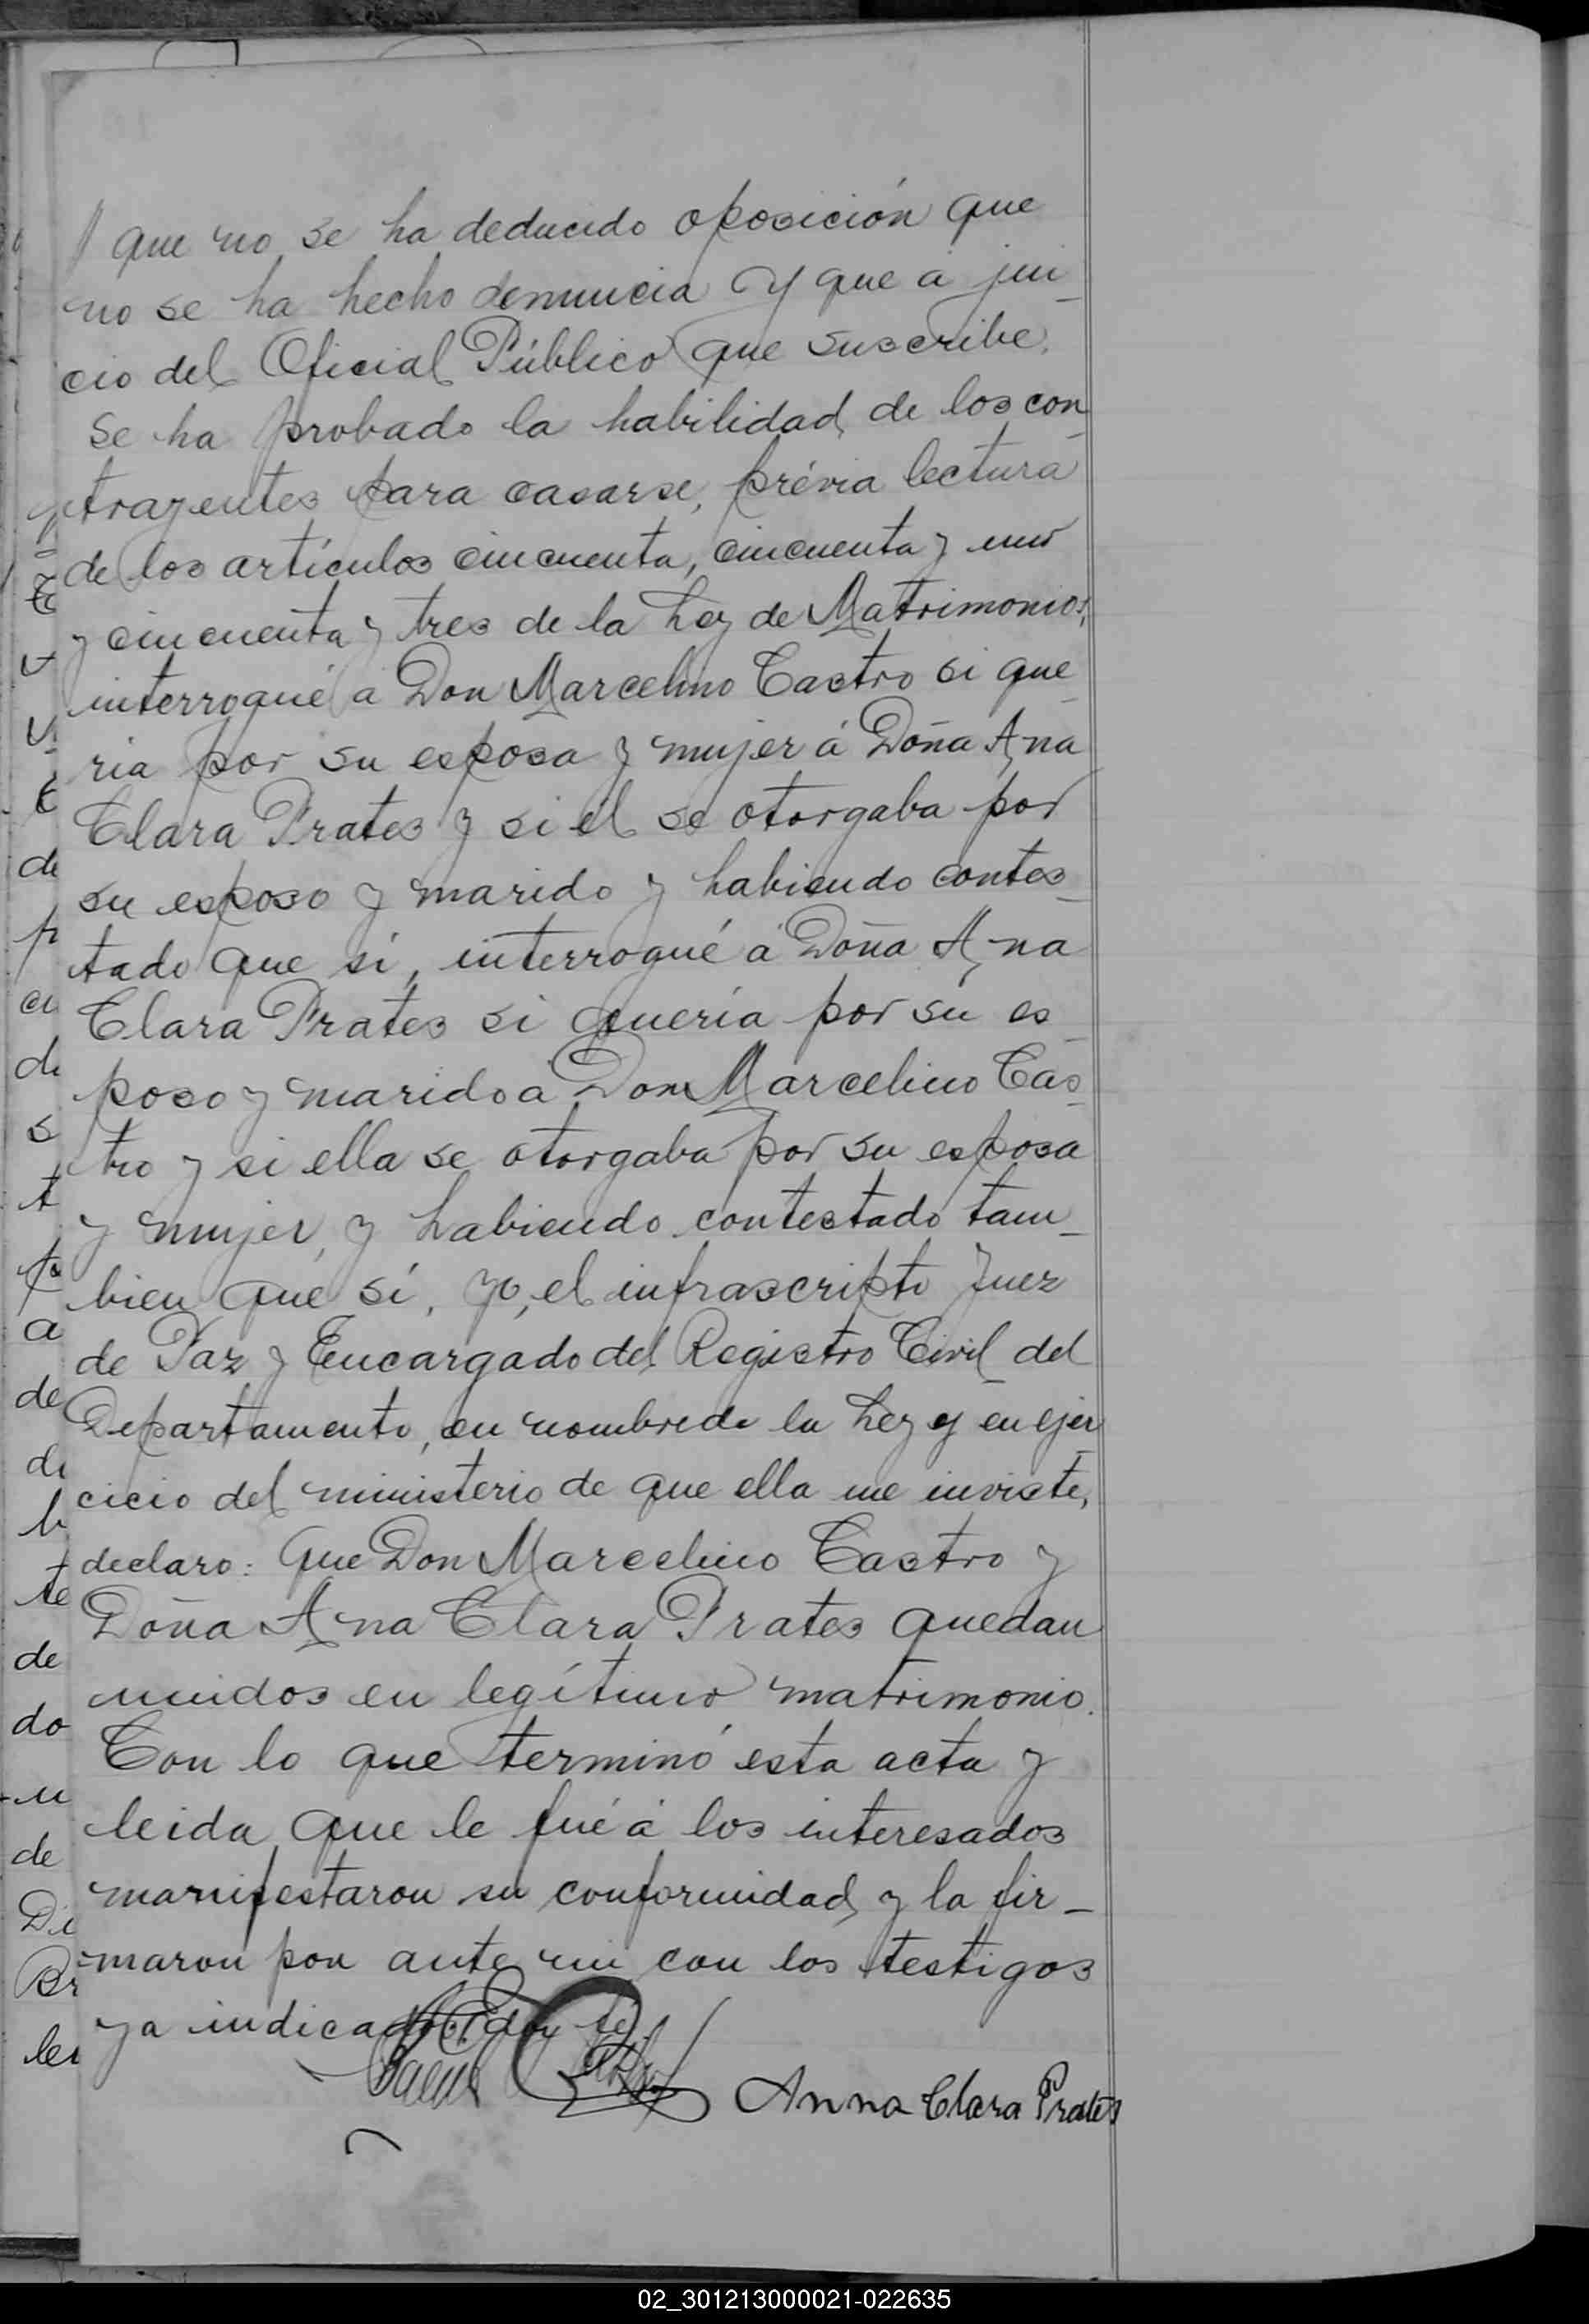 // que no se ha deducido oposición que
no se ha hecho denuncia y que á jui_
cio del Oficial Público que suscribe,
se ha probado la habilidad de los con_
trayentes para casarse, prévia lectura
de los artículos cincuenta, cincuenta y uno
y cincuenta y tres de la Ley de Matrimonios,
interrogué á Don Marcelino Castro si que_
ria por su esposa y mujer á Doña Ana
Clara Prates y si él se otorgaba por
su esposo y marido y habiendo contes_
tado que sí, interrogué á Doña Ana
Clara Prates si quería por su es_
poso y marido a Don Marcelino Cas_
tro y si ella se otorgaba por su esposa
y mujer, y habiendo contestado tam_
bien que sí, yo, el infrascripto Juez
de Paz y Encargado del Registro Civil del
Departamento, en nombre de la Ley y en ejer_
cicio del ministerio de que ella me inviste,
declaro: Que Don Marcelino Castro y
Doña Ana Clara Prates quedan
unidos en legítimo matrimonio.
Con lo que terminó esta acta y
leida que le fué á los interesados
manifestaron su conformidad y la fir_
maron por ante mi con los testigos
ya indicados doy fé
Anna Clara Prates
02_301213000021-022635